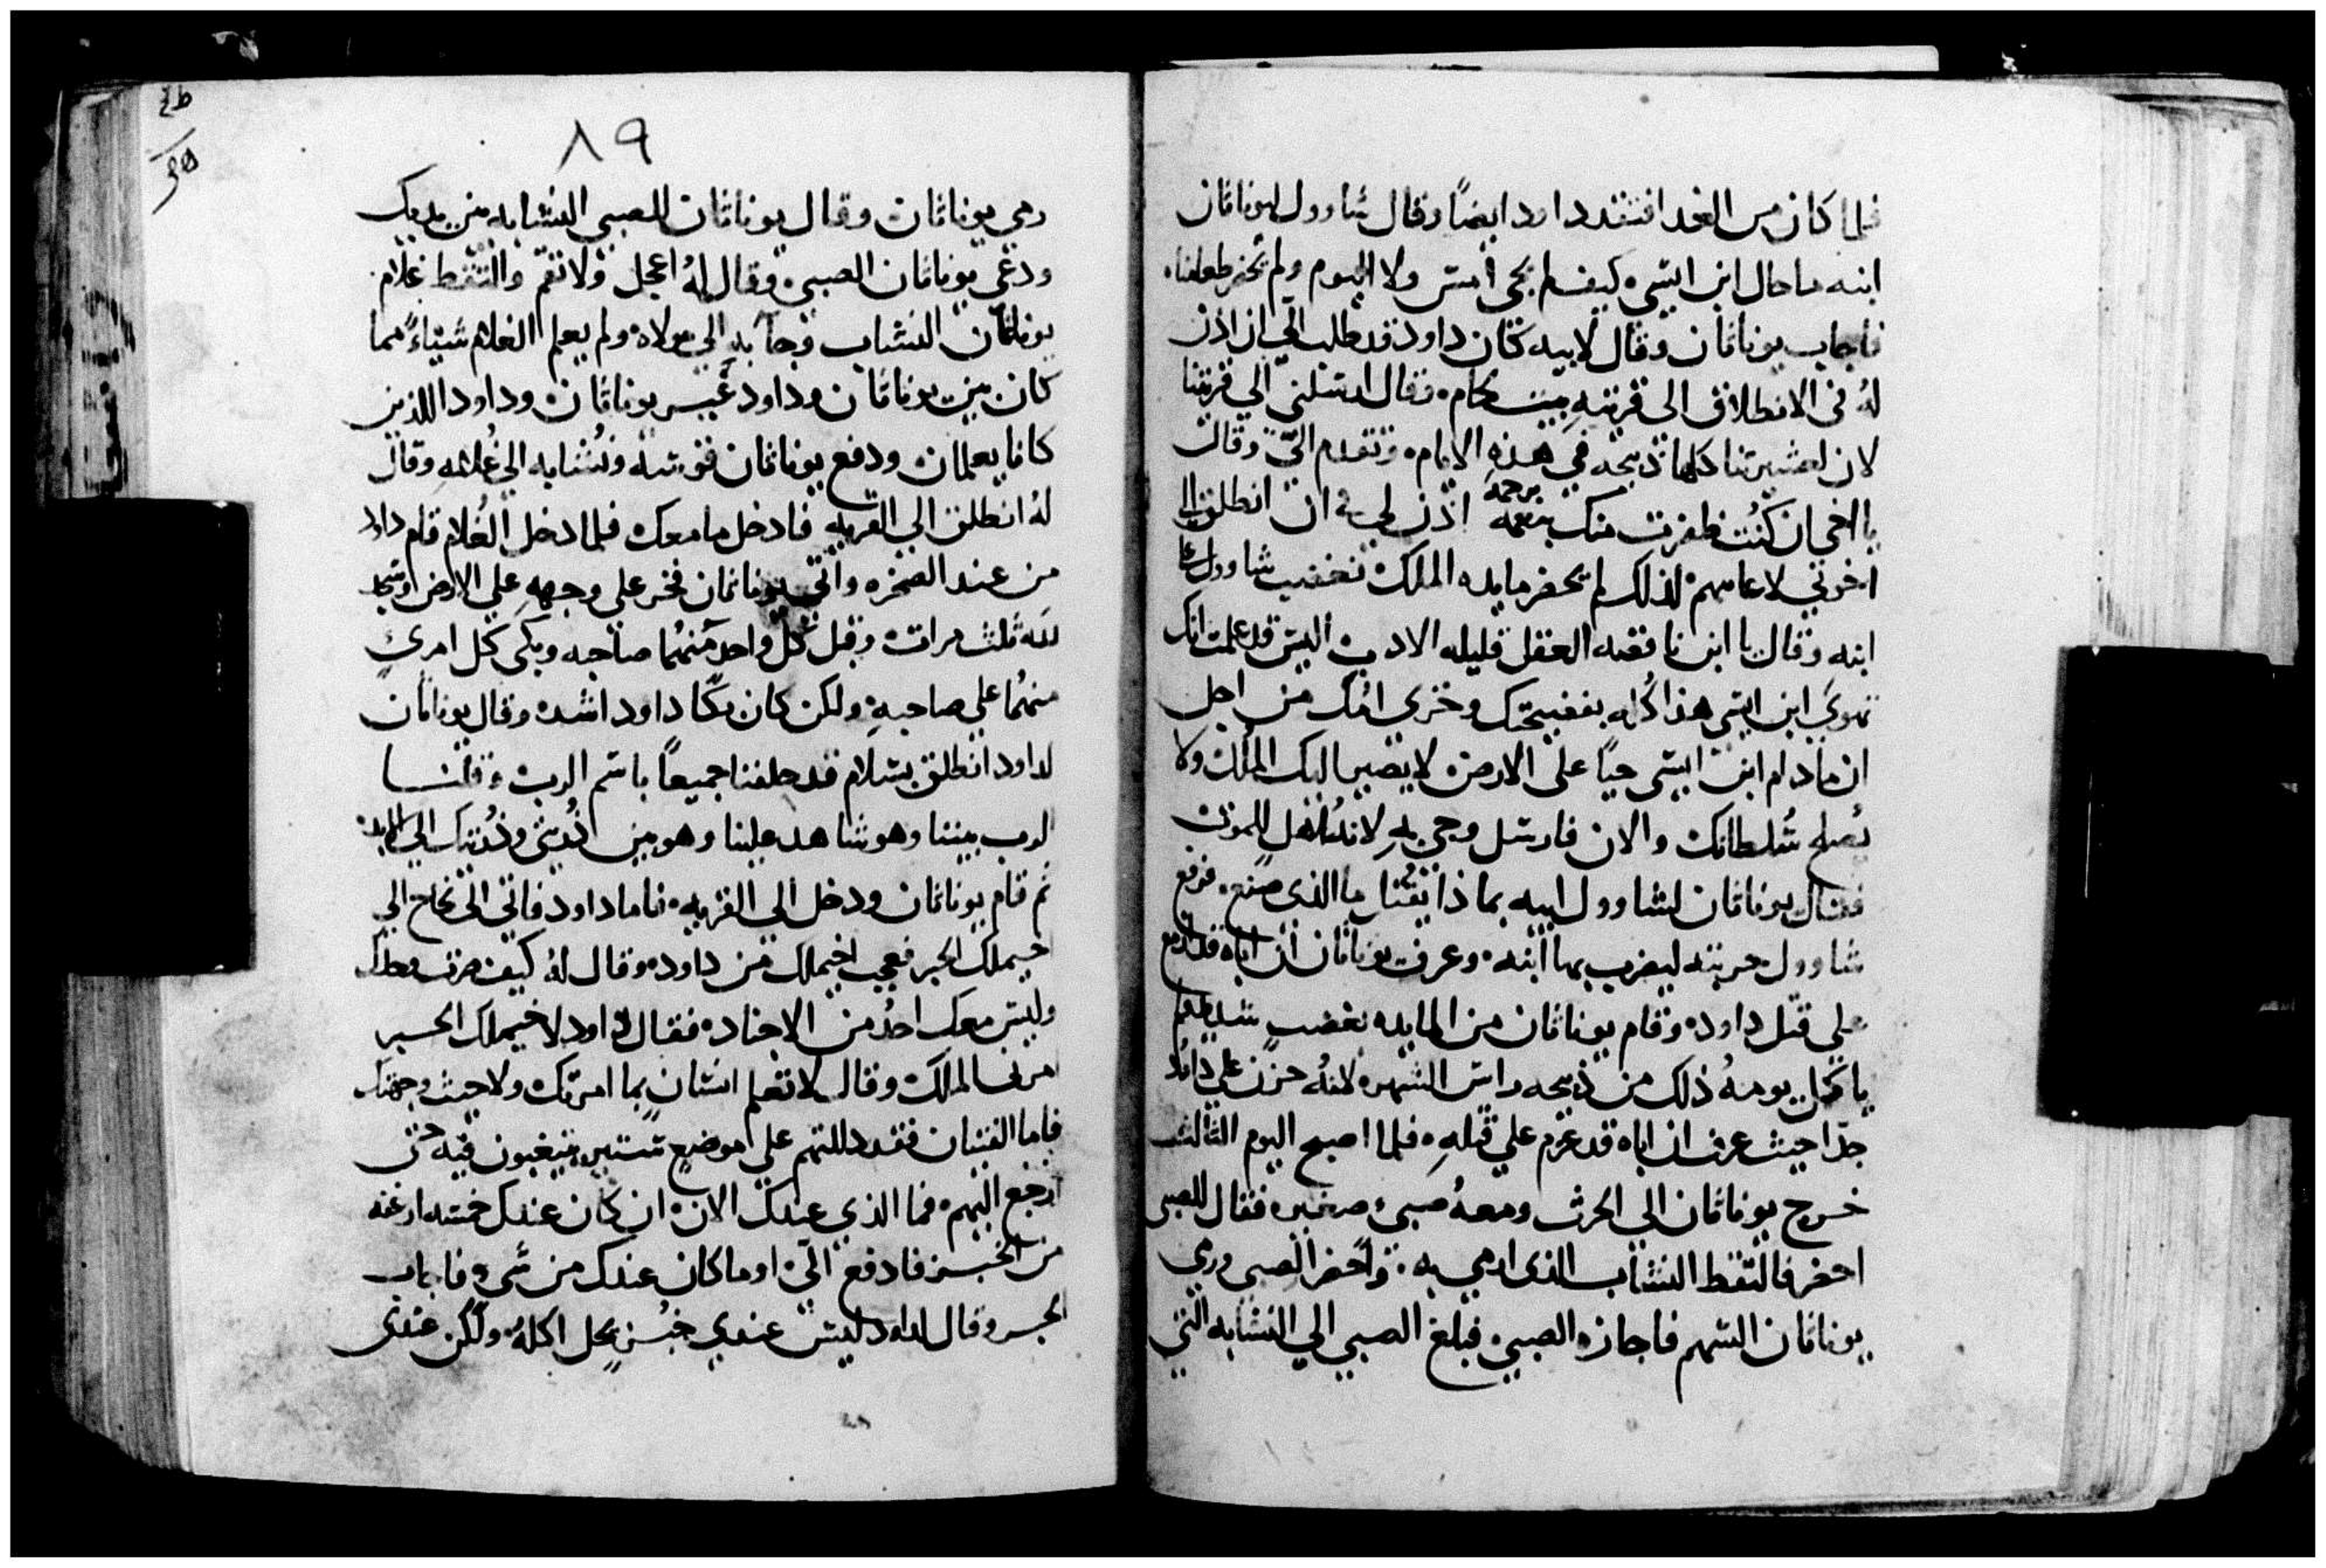 فلما كان من الغد افتقد داود ايضاً وقال شاوول ليوناثان
ابنه ما حال ابن ايشي كيف لم يجي امس ولا اليوم ولم يحضر طعامنا
فاجاب يوناثان وقال لابيه كان داود قد طلب الي ان اذن
له في الانطلاق الى قريته بيت لحام وقال ارسلني الي قريتنا
لان لعشيرتنا كلها ذبيحه في هذه الايام وتقدم اليّ وقال
يا اخي ان كنت ظفرت منك بنعمه برحمه اذن لي في ان انطلق الى
اخوتي لاعاينهم لذلك لم يحضر مايده الملك فغضب شاوول على
ابنه وقال يا ابن ناقصه العقل قليله الادب اليس قد علمت انك
تهوي ابن ايشي هذا كله بفضيحتك وخزي امك من اجل
ان ما دام ابن ايشي حياً على الارض لا يصير اليك الملك ولا
يصلح سُلطانك والان فارسل وجي به لانه اهل للموت
فقال يوناثان لشاوول ابيه بماذا يقتل ما الذي صنع فرفع
شاوول حربته ليضرب بها ابنه وعرف يوناثان ان اباه قد ازمع
على قتل داود وقام يوناثان من المايده بغضب شديد لم
ياكل يومه ذلك من ذبيحه راس الشهر لانه حزن علي داود
جدا حيث عرف ان اباه قد عزم علي قتله فلما اصبح اليوم الثالث
خرج يوناثان الي الحرث ومعه صبي صغير فقال للصبي
احضر فالتقط النشاب الذي ارمي به واحضر الصبي ورمى
يوناثان السهم فاجازه الصبي فبلغ الصبي الي النشابه التي
٨٩
رمي يوناثان وقال يوناثان للصبي النشابه من يديك
ودعي يوناثان الصبي وقال له اعجل ولا تقم والتقط غلام
يوناثان النشاب وجا به الي مولاه ولم يعلم الغلام شياءً مما
كان بين يوناثان وداود غير يوناثان وداود اللذين
كانا يعلمان ودفع يوناثان قوسه ونُشابه الي غُلامه وقال
لهُ انطلق الي القريه فادخل ما معك فلما دخل الغُلام قام داود
من عند الصخره واتي يوناثان فخر علي وجهه علي الارض وسجد
لله ثلث مرات وقبل كل واحد منهُما صاحبه وبكى كل امرئٍ
منهُما علي صاحبهِ ولكن كان بكا داود اشد وقال يوناثان
لداود انطلق بسلام قد حلفنا جميعاً باسم الرب وقلنا
الرب بيننا وهو شاهد علينا وهو بين ذُريتي وذُريتك الي الابد
ثم قام يوناثان ودخل الي القريه فاما داود فاتى الى نحاح الي
اخيملك الحبر فعجب اخيملك من داود وقال لهُ كيف صرت وحدك
وليس معك احدُ من الاجناد فقال داود لاخيملك الحبر
امرني الملك وقال لا تعلم انسان بما امرتك ولا حيث وجهتك
فاما الفتيان فقد دللتهم علي موضع مستتر يتغيبون فيه حتى
ارجع اليهم فما الذي عندك الان ان كان عندك خمسه ارغفه
من الخبز فادفع اليّ او ما كان عندك من شي فاجاب
الحبر وقال لداود ليس عندي خُبزٍ يحل اكلهُ ولكن عندي